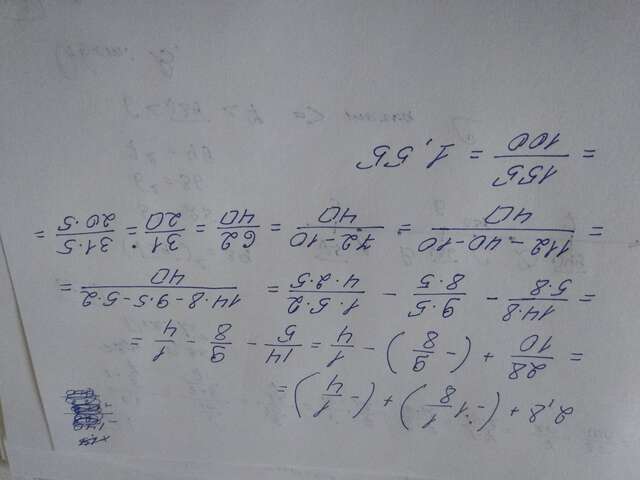 2,8 + (-1 1/8) + (-1/4) =
= 28/10 + (-9/8) - 1/4 = 14/5 - 9/8 - 1/4 =
= 14·8/5·8 - 9·5/8·5 - 1·5·2/4·2·5 = 14·8-9·5-5·2/40 =
= 112-40-10/40 = 72-10/40 = 62/40 = 31/20 = 31·5/20·5 =
= 155/100 = 1,55